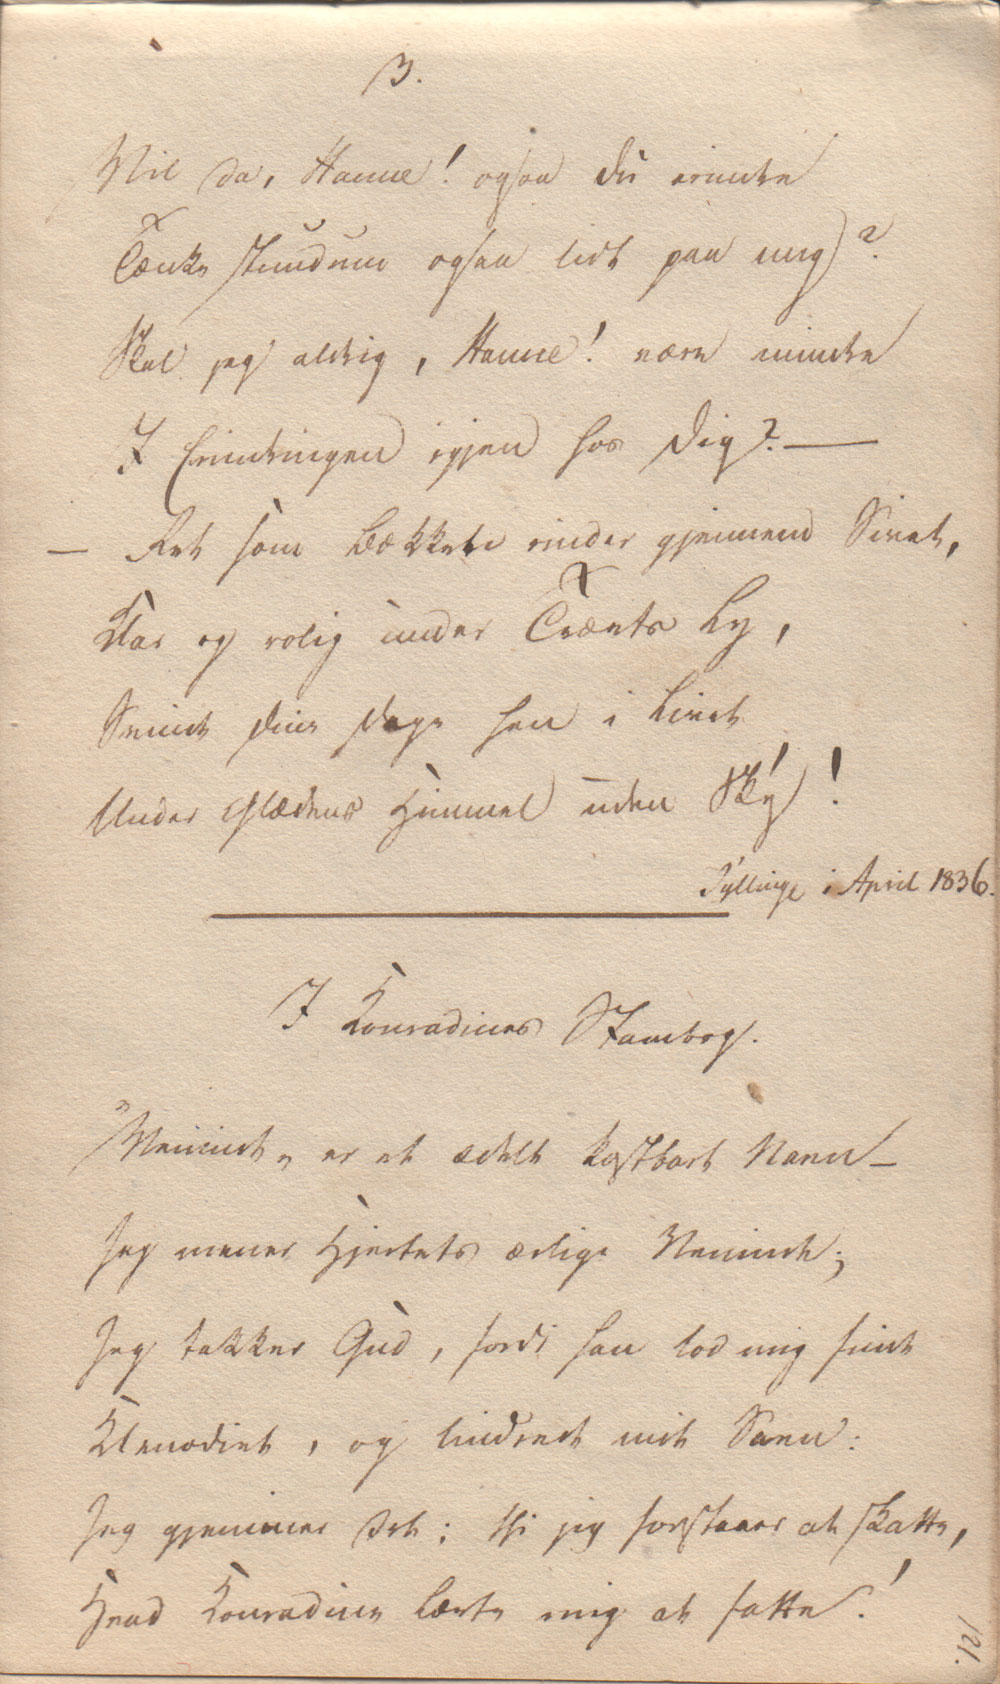 3.
Vil da, Hanne! ogsaa du erindre
Tænke stundum ogsaa lidt paa mig?
Skal jeg aldrig, Hanne! være mindre
I Erindringen igjen hos Dig? —
— Let som Bækken rinder gjennem Sivet,
Klar og rolig under Træets Ly,
Svinde dine Dage hen i Livet
Under Glædens Himmel uden Sky!
i April 1836.
I Konradines Stambog.
"Veninde" er et ædelt kostbart Navn —
Jeg mener Hjertets ærlige Veninde;
Jeg takker Gud, fordi han lod mig finde
Klenodiet, og lindrede mit Savn:
Jeg gjemmer det; thi jeg forstaaer at skatte,
Hvad Konradine lærte mig at fatte!
121.